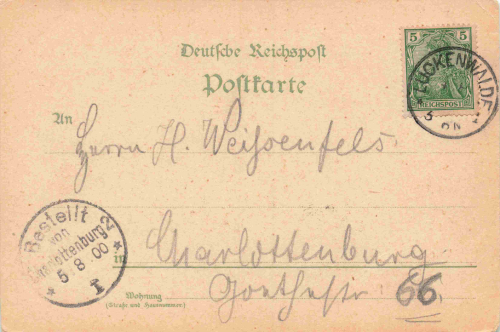 Deutsche Reichspost
Postkarte
5 5
REICHSPOST
LUCKENWALDE
5
An
Herrn H. Weißenfels
Bestellt
von
Charlottenburg 2
5 8 00
in Charlottenburg
Wohnung
(Straße und Hausnummer)
Goethestr 66